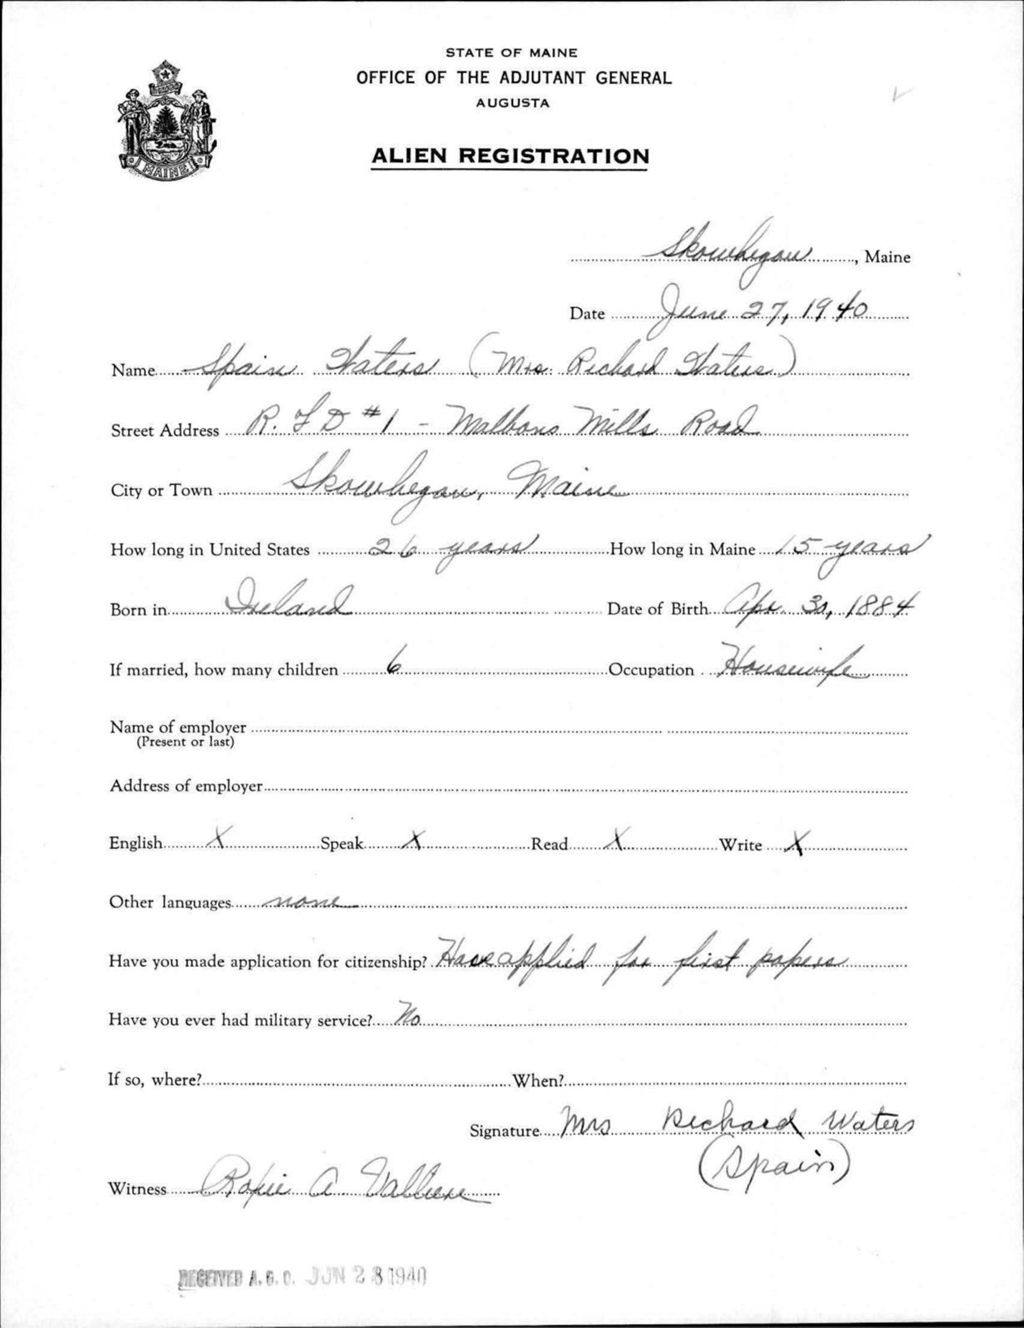 STATE OF MAINE
OFFICE OF THE ADJUTANT GENERAL
AUGUSTA
ALIEN REGISTRATION
MAINE
Skowhegan, Maine
Date June 27, 1940
Name Spain Waters (Mrs. Richard Waters)
Street Address R.F.D #1 - Malbons Mills Road
City or Town Skowhegan, Maine
How long in United States 26 years How long in Maine 15 years
Born in Ireland Date of Birth Apr. 30, 1884
If married, how many children 6 Occupation Housewife
Name of employer
(Present or last)
Address of employer
English X Speak X Read X Write X
Other languages none
Have you made application for citizenship? Have applied for first papers
Have you ever had military service? No
If so, where? When?
Signature Mrs Richard Waters
(Spain)
Witness A
RECEIVED A.G.O. JUN 28 1940